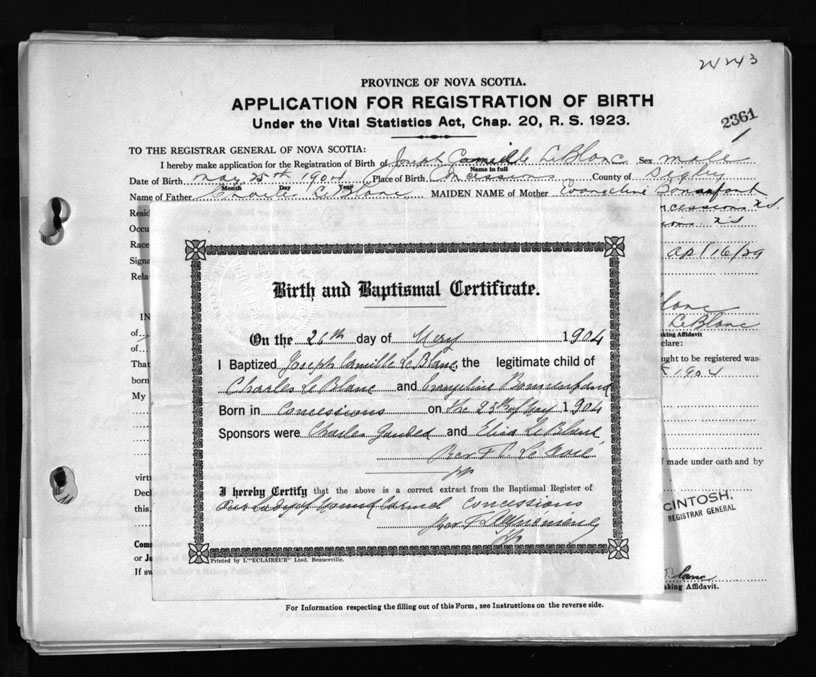 2243
PROVINCE OF NOVA SCOTIA.
APPLICATION FOR REGISTRATION OF BIRTH
Under the Vital Statistics Act, Chap. 20, R. S. 1923.
2361
TO THE REGISTRAR GENERAL OF NOVA SCOTIA:
I hereby make application for the Registration of Birth of Joseph Camille LeBlanc Sex male
Name in full
Date of Birth May 25th 1904 Place of Birth County of Digby
Month Day Year
Name of Father Charles LeBlanc MAIDEN NAME of Mother Evangeline
Resid
Occu
Race
Signa April 16/29
Rela
Birth and Baptismal Certificate.
On the 26th day of May 1904
I Baptized Joseph Camille Le Blanc, the legitimate child of
Charles Le Blanc and Evangeline
Born in Concessions on the 25th of May 1904
Sponsors were Charles and Elisa LeBlanc
Rev
I hereby Certify that the above is a correct extract from the Baptismal Register of
Our Lady of Mount Carmel Concessions
Rev
Printed by L'"ECLAIREUR" Lted. Beauceville.
IN
of
of
That
born
My
LeBlanc
aking Affidavit
clare:
ught to be registered was
1904
virtu
Decl
this
made under oath and by
CINTOSH,
REGISTRAR GENERAL
Com
or Ju
If sw
Blanc
aking Affidavit.
For Information respecting the filling out of this Form, see Instructions on the reverse side.